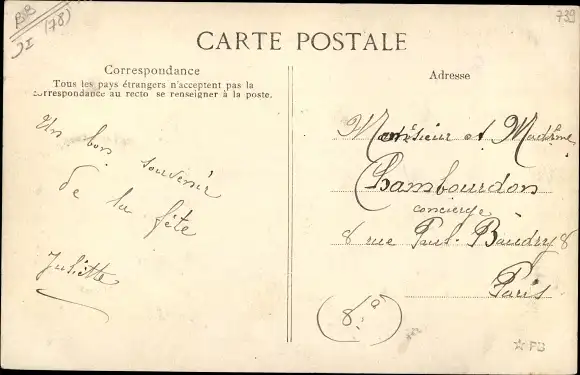 BB
(78)
739
CARTE POSTALE
Correspondance
Tous les pays étrangers n'acceptent pas la
correspondance au recto se renseigner à la poste.
Adresse
Un bon souvenir
de la fête
Juliette
Monsieur et Madame
Chambourdon
concierge
8 rue Paul-Baudry 8
Paris
☆ PB